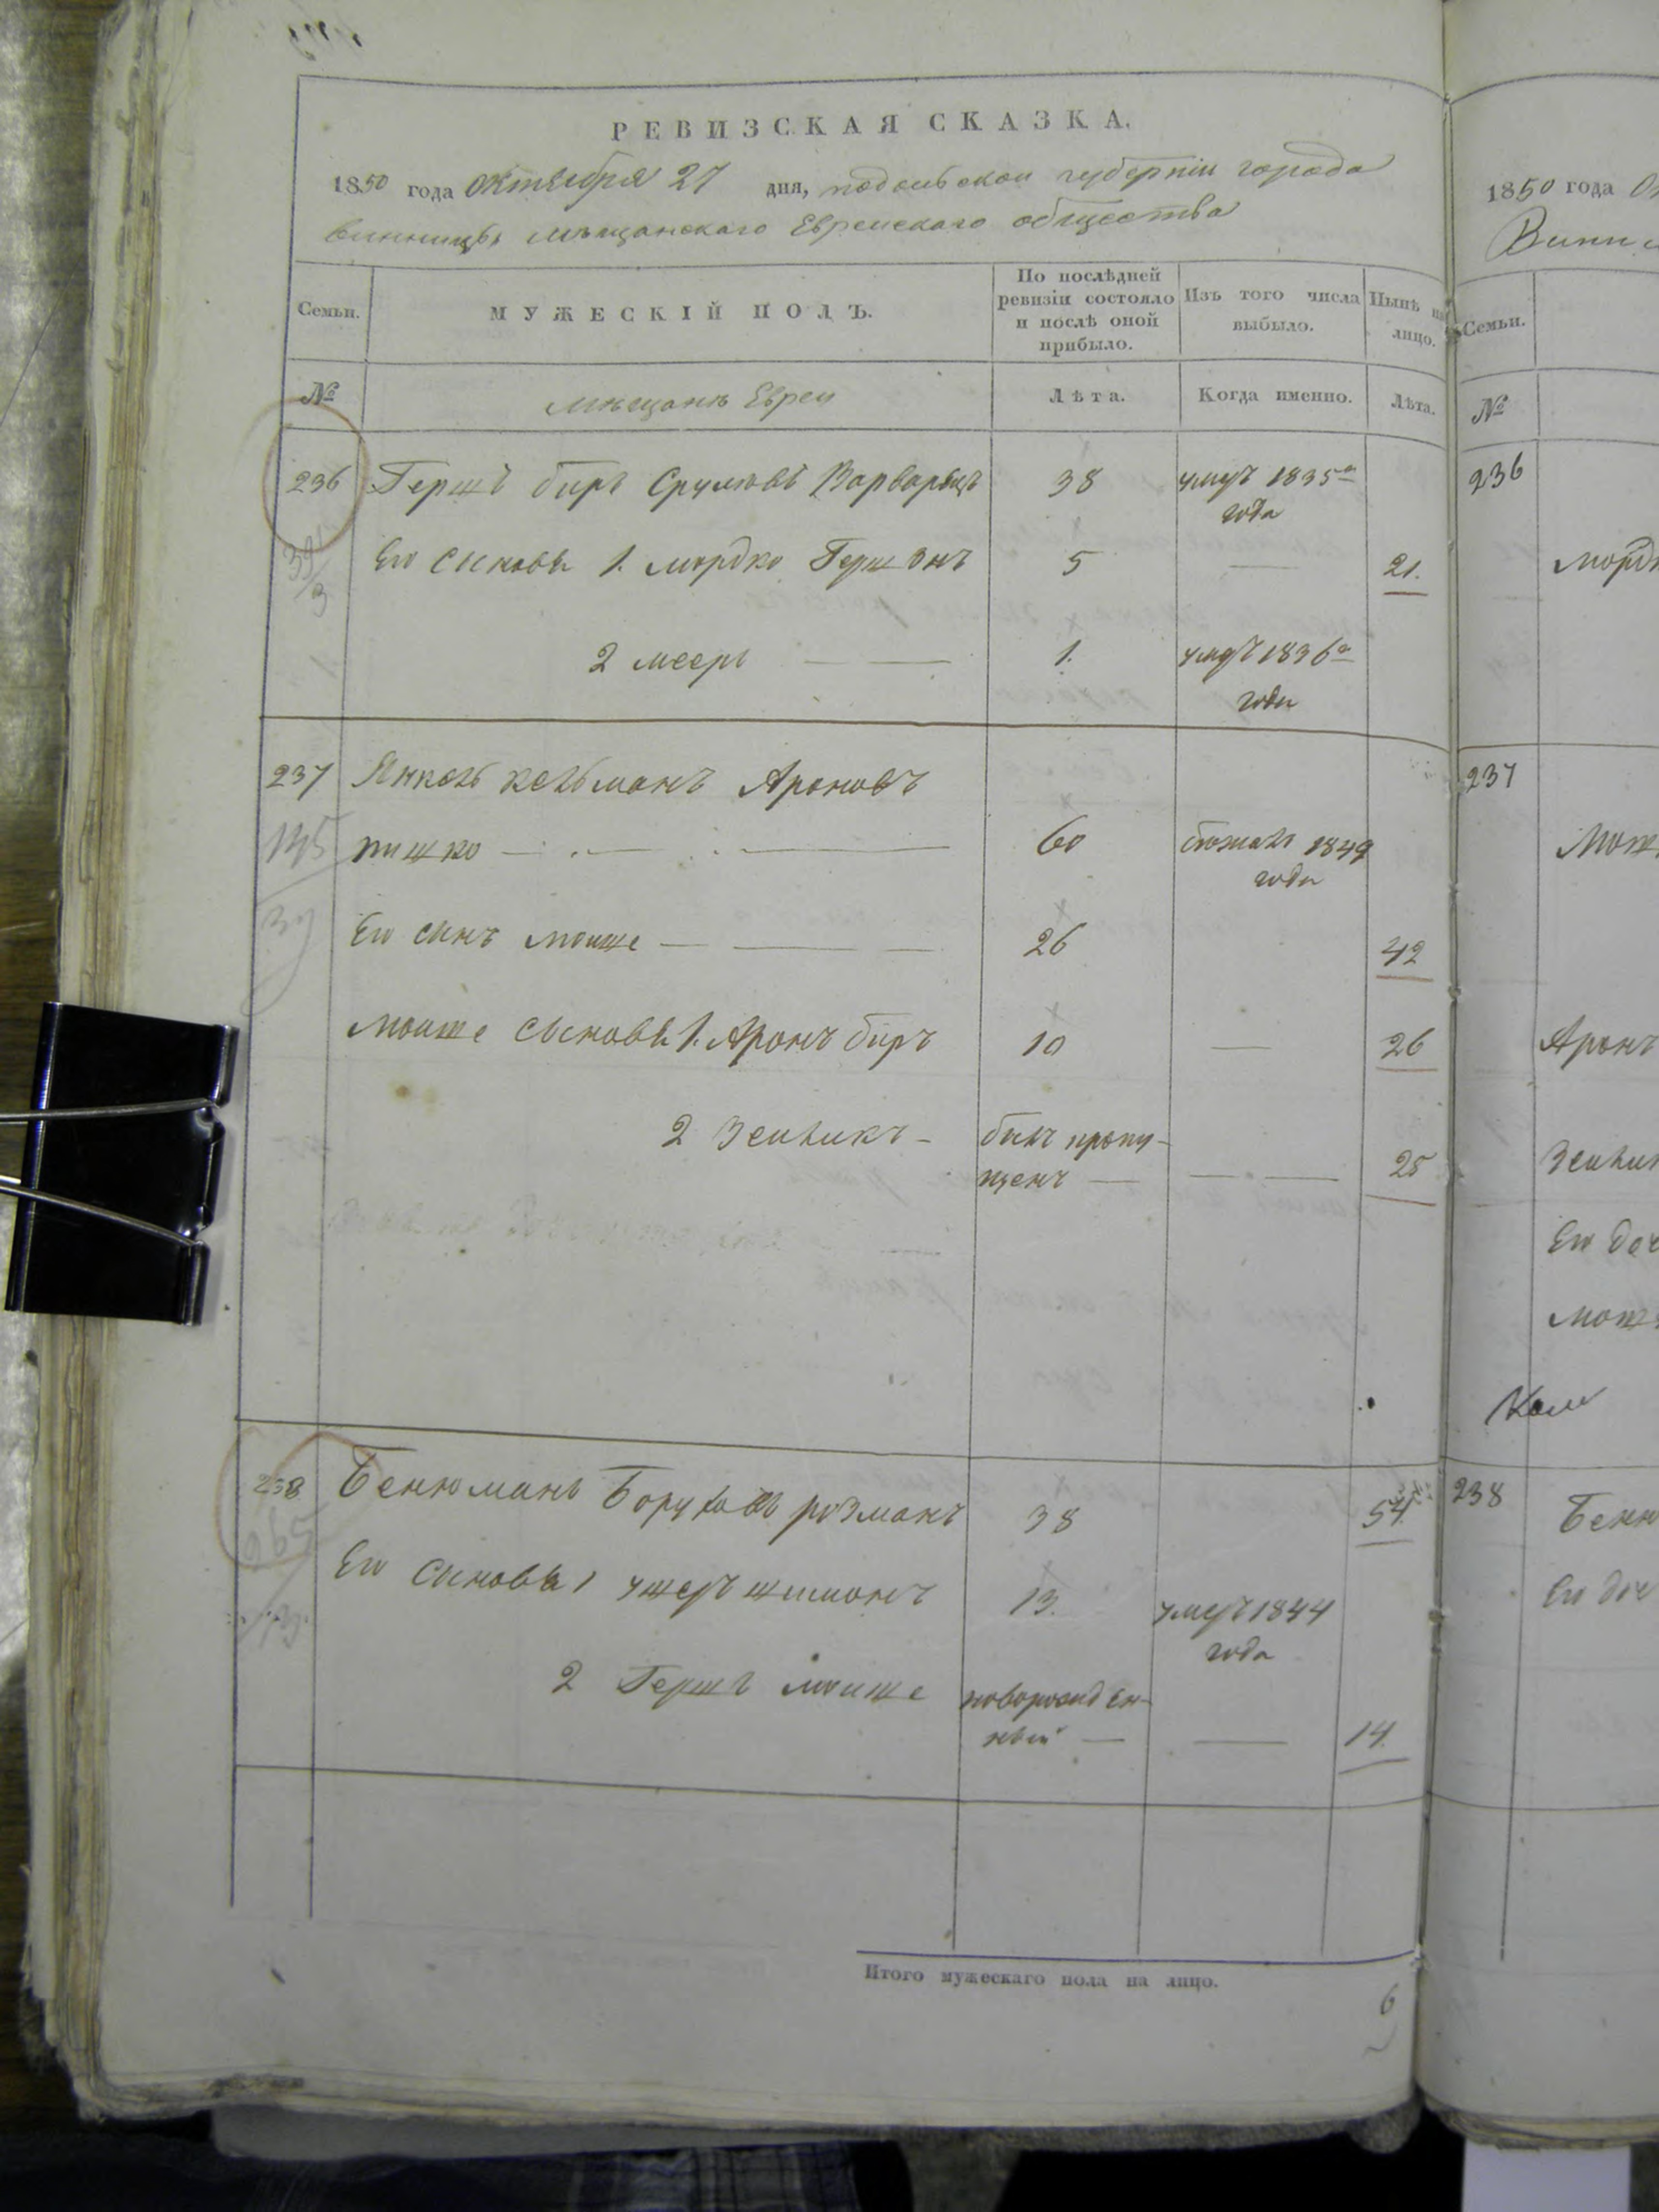 РЕВИЗСКАЯ СКАЗКА.
1850 года октября 27 дня, подольской губерніи города
винницы мѣщанскаго Еврейскаго общества
Семьи.
МУЖЕСКІЙ ПОЛЪ.
По послѣдней ревизіи состояло и послѣ оной прибыло.
Изъ того числа выбыло.
Нынѣ на лицо.
№
мѣщанъ Евреи
Лѣта.
Когда именно.
Лѣта.
236 Гершъ биръ Срулювъ Варварецъ 38 умеръ 1835 года
39/3
Его сыновья 1. мордко Гершонъ 5 — 21.
2 мееръ — — 1. умеръ 1836 года
237 Янкель кельманъ Ароновъ
145
39
пишко — — 60 бежалъ 1849 года
Его сынъ мошке — — 26 42
мошке сыновья 1. Аронъ биръ 10 — 26
2 Зейликъ - былъ пропущенъ — — — 25
238 Бенюминъ Боруховъ розманъ 38 54
265
13
Его сыновья 1 ушеръ шлиомъ 13. умеръ 1844 года
2 Гершъ мошке новорожден-
ный — — 14.
Итого мужескаго пола на лицо.
6
1850 года
Винн
Семьи.
№
236
морд
237
Мош
Аронъ
Зейли
Его доч
мошк
238
Беню
Его доч